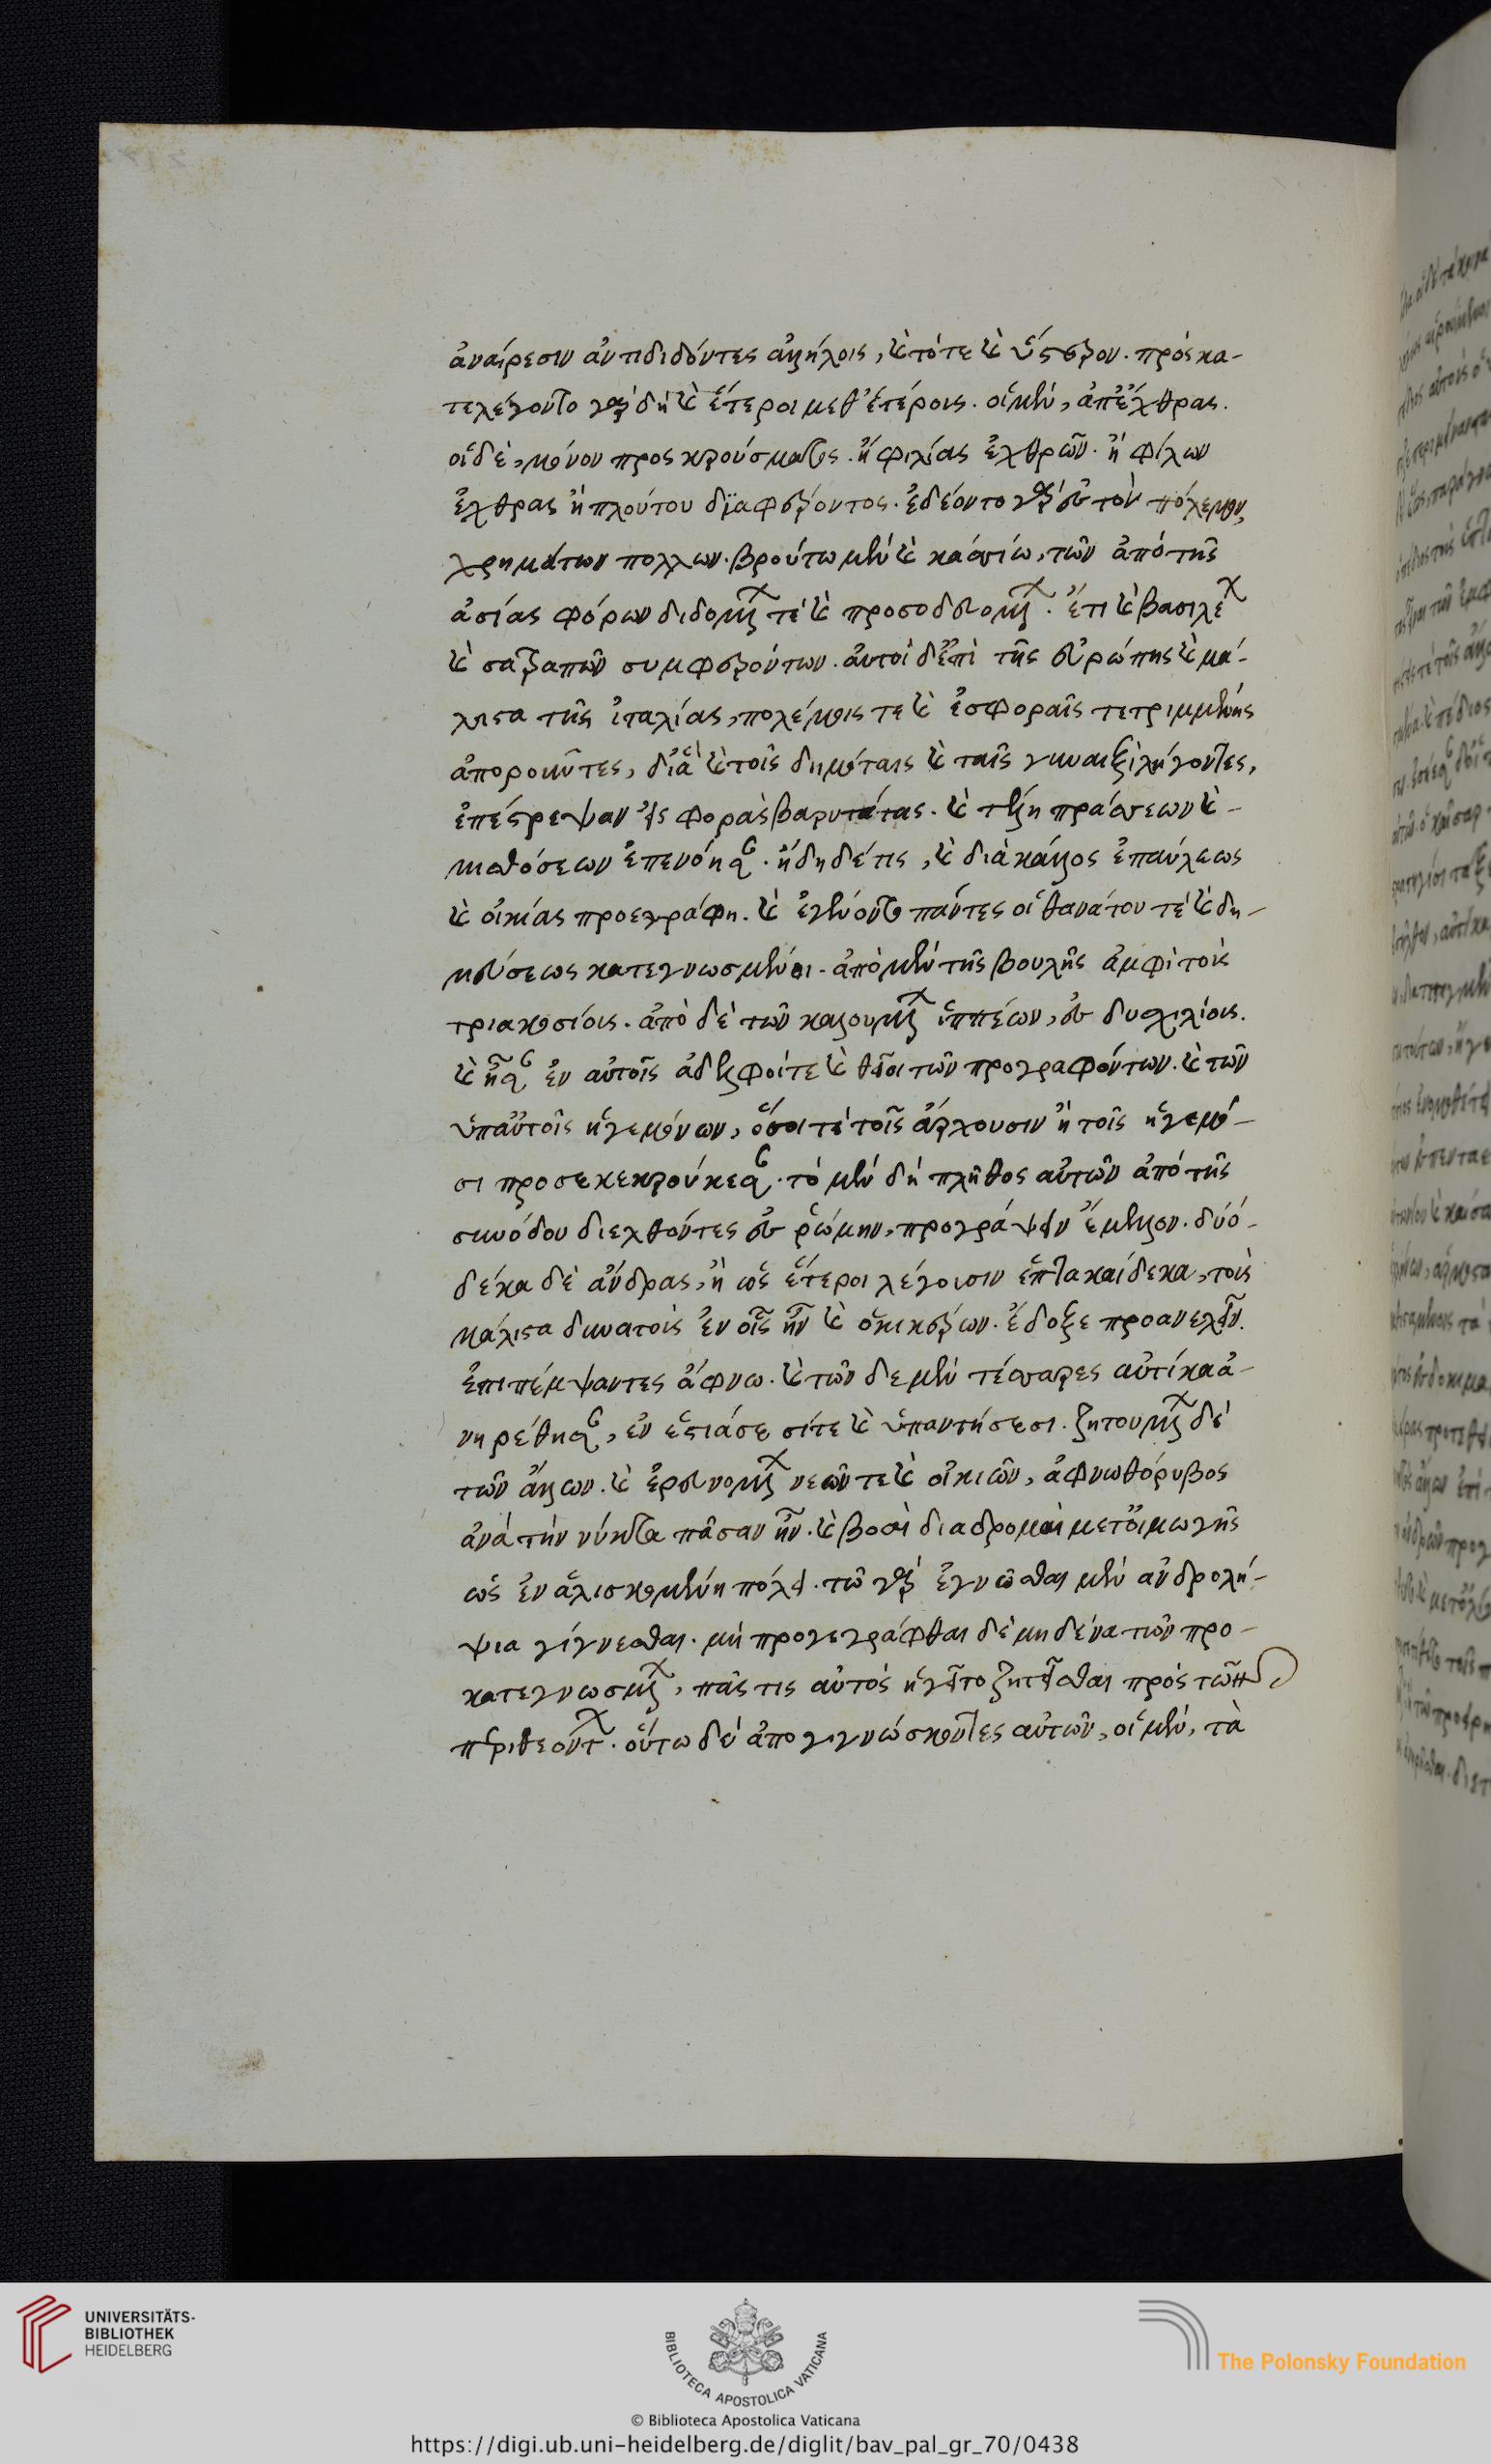 ἀναίρεσιν ἀντιδιδόντες ἀλλήλοις, καὶ τότε καὶ ὕστερον. πρὸς κα-
τελέγοντο γὰρ δὴ καὶ ἕτεροι μεθ' ἑτέροις. οἱ μὲν, ἀπ' ἔχθρας.
οἱ δὲ, μόνον προσκρούσματος. ἢ φιλίας ἐχθρῶν. ἢ φίλων
ἔχθρας ἢ πλούτου διαφέροντος. ἐδέοντο γὰρ ἐς τὸν πόλεμον,
χρημάτων πολλων. βρούτω μὲν καὶ κασσίω, τῶν ἀπὸ τῆς
ἀσίας φόρων διδομένων τὲ καὶ προσοδευομένων. ἔτι καὶ βασιλέων
καὶ σατραπῶν συμφερόντων. αὐτοὶ δ' ἐπὶ τῆς εὐρώπης καὶ μά-
λιστα τῆς ἰταλίας, πολέμοις τε καὶ ἐσφοραῖς τετριμμένης
ἀποροῦντες, δι' ἃ καὶ τοῖς δημόταις καὶ ταῖς γυναιξὶ λήγοντες,
ἐπέγρεψαν εἰς φορὰς βαρυτάτας. καὶ τέλη πράσεων καὶ -
μισθώσεων ἐπενόησαν. ἤδη δέ τις, καὶ διὰ κάλλος ἐπαύλεως
καὶ οἰκίας προεγράφη. καὶ ἐγένοντο πάντες οἱ θανάτου τὲ καὶ δη-
μεύσεως κατεγνωσμένοι. ἀπὸ μὲν τῆς βουλῆς ἀμφὶ τοὺς
τριακοσίους. ἀπὸ δὲ τῶν καλουμένων ἱππέων, ἐς δισχιλίους.
καὶ ἦσαν ἐν αὐτοῖς ἀδελφοί τε καὶ θεῖοι τῶν προγραφόντων. καὶ τῶν
ὑπ' αὐτοῖς ἡγεμόνων, ὅσοι τὲ τοῖς ἄρχουσιν ἢ τοῖς ἡγεμό-
σι προσεκεκρούκεσαν. τὸ μὲν δὴ πλῆθος αὐτῶν ἀπὸ τῆς
συνόδου διελθόντες ἐς ῥώμην, προγράψειν ἔμελλον. δύο-
δεκα δὲ ἄνδρας, ἢ ὡς ἕτεροι λέγουσιν ἑπτακαίδεκα, τοὺς
μάλιστα δυνατοὺς ἐν οἷς ἦν καὶ ὁ κικέρων. ἔδοξε προανελεῖν.
ἐπιπέμψαντες ἄφνω. καὶ τῶν δε μὲν τέσσαρες αὐτίκα ἀ-
νηρέθησαν, ἐν ἑστιάσεσί τε καὶ ὑπαντήσεσι. ζητουμένων δὲ
τῶν ἄλλων. καὶ ἐρευνομένων νεῶν τε καὶ οἰκιῶν, ἄφνω θόρυβος
ἀνὰ τὴν νύκτα πᾶσαν ἦν. καὶ βοαὶ διαδρομαὶ μετ' οἰμωγῆς
ὡς ἐν ἁλισκομένη πόλει. τῶ γὰρ ἐγνῶσθαι μὲν ἀνδρολή-
ψια γίγνεσθαι. μὴ προγεγράφθαι δὲ μηδένα τῶν προ-
κατεγνωσμένων, πᾶς τις αὐτὸς ἡγεῖτο ζητεῖσθαι πρὸς τῶν
περιθεόντων. οὕτω δὲ ἀπογιγνώσκοντες αὐτῶν, οἱ μὲν, τὰ
UNIVERSITÄTS-
BIBLIOTHEK
HEIDELBERG
BIBLIOTECA APOSTOLICA VATICANA
The Polonsky Foundation
© Biblioteca Apostolica Vaticana
https://digi.ub.uni-heidelberg.de/diglit/bav_pal_gr_70/0438